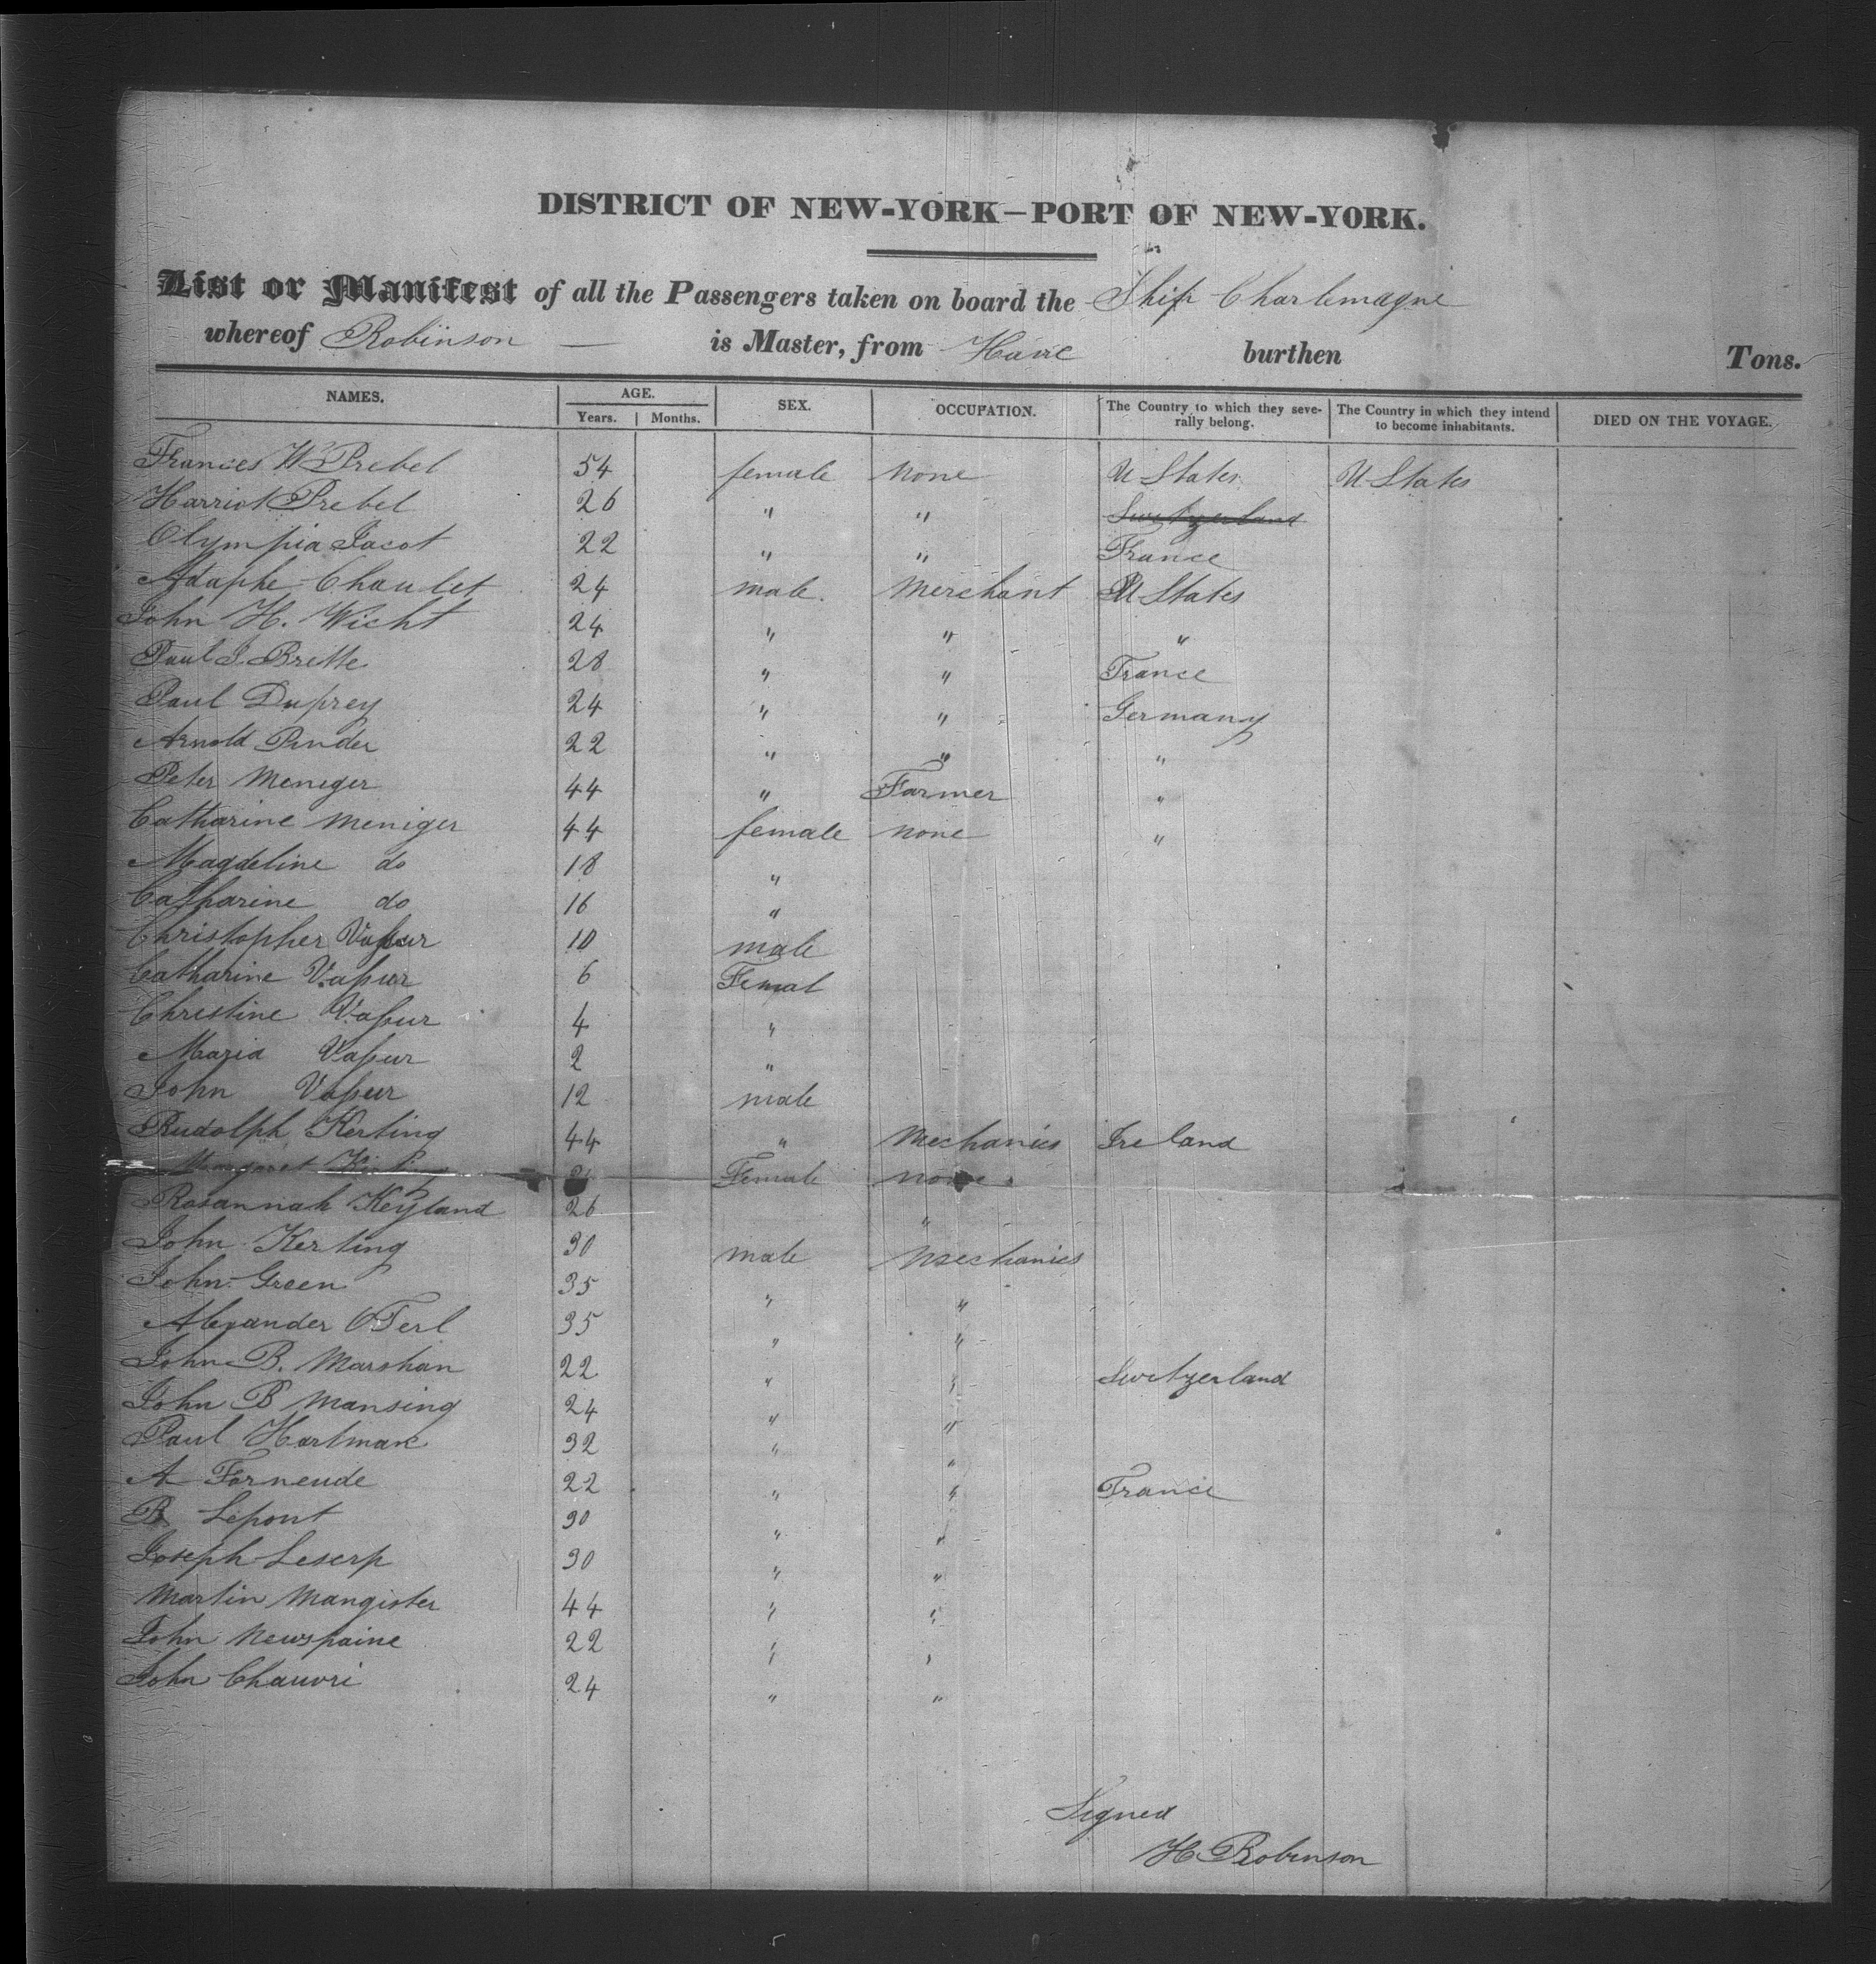 DISTRICT OF NEW-YORK—PORT OF NEW-YORK.
List or Manifest of all the Passengers taken on board the Ship Charlemagne
whereof Robinson — is Master, from Havre burthen Tons.
NAMES. AGE. Years. Months. SEX. OCCUPATION. The Country to which they severally belong. The Country in which they intend to become inhabitants. DIED ON THE VOYAGE.
Frances W Prebel 54 female none U States U States
Harriot Prebel 26 " " Switzerland
Olympia Jacot 22 " " France
Adaphe Chaulet 24 male. Merchant U States
John H. Wicht 24 " " "
Paul J. Brette 28 " " France
Paul Duprey 24 " " Germany
Arnold Pinder 22 " " "
Peter Meneger 44 " Farmer "
Catharine Meniger 44 female none "
Magdeline do 18 "
Catharine do 16 "
Christopher Vapur 10 male
Catharine Vapur 6 Femal
Christine Vapur 4 "
Maria Vapur 2 "
John Vapur 12 male
Rudolph Kerting 44 " Mechanics Ireland
Margaret Female none
Rosannah Keyland 26 "
John Kerting 30 male Mechanics
John Green 35 " "
Alexander OTerl 35 " "
John B. Marshan 22 " " Switzerland
John B Mansing 24 " "
Paul Hartman 32 " "
A Forneude 22 " " France
B Lepont 30 " "
Joseph Leserp 30 " "
Martin Mangister 44 " "
John Newspaine 22 " "
John Chauvri 24 " "
Signed
H. Robinson